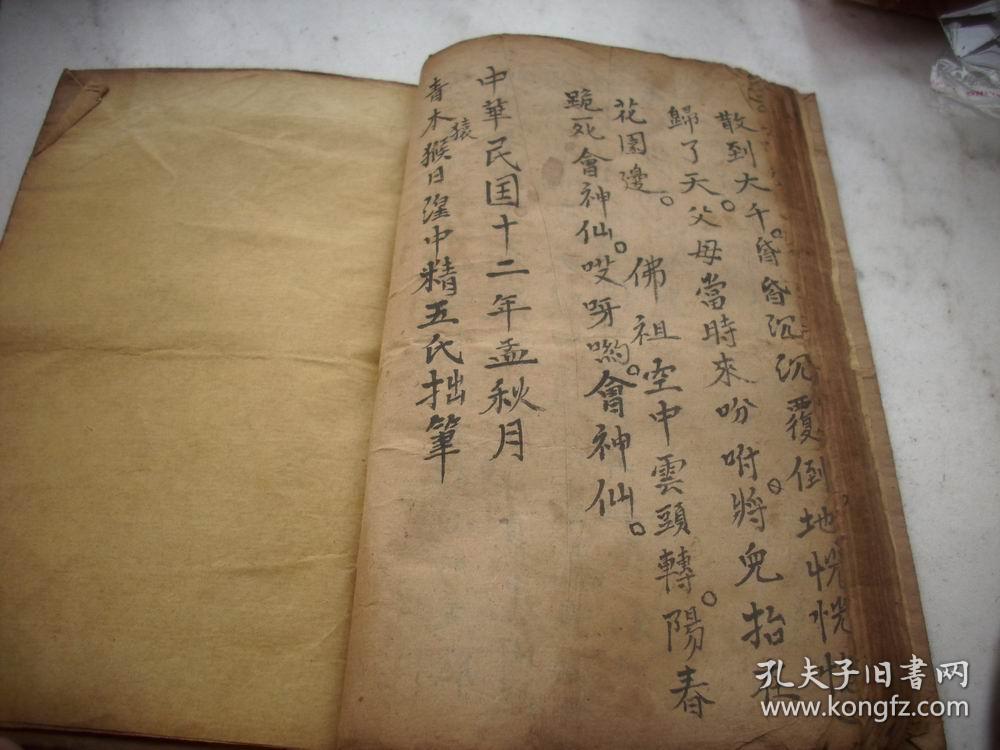 散到大千。昏昏沉沉覆倒地。恍恍
歸了天。父母當時來吩咐。將兒抬在
花園邊。佛祖空中雲頭轉。陽春
跪死會神仙。哎呀喲。會神仙。
中華民囯十二年孟秋月
青木猴日
猿
中精五氏拙筆
孔夫子旧书网
www.kongfz.com